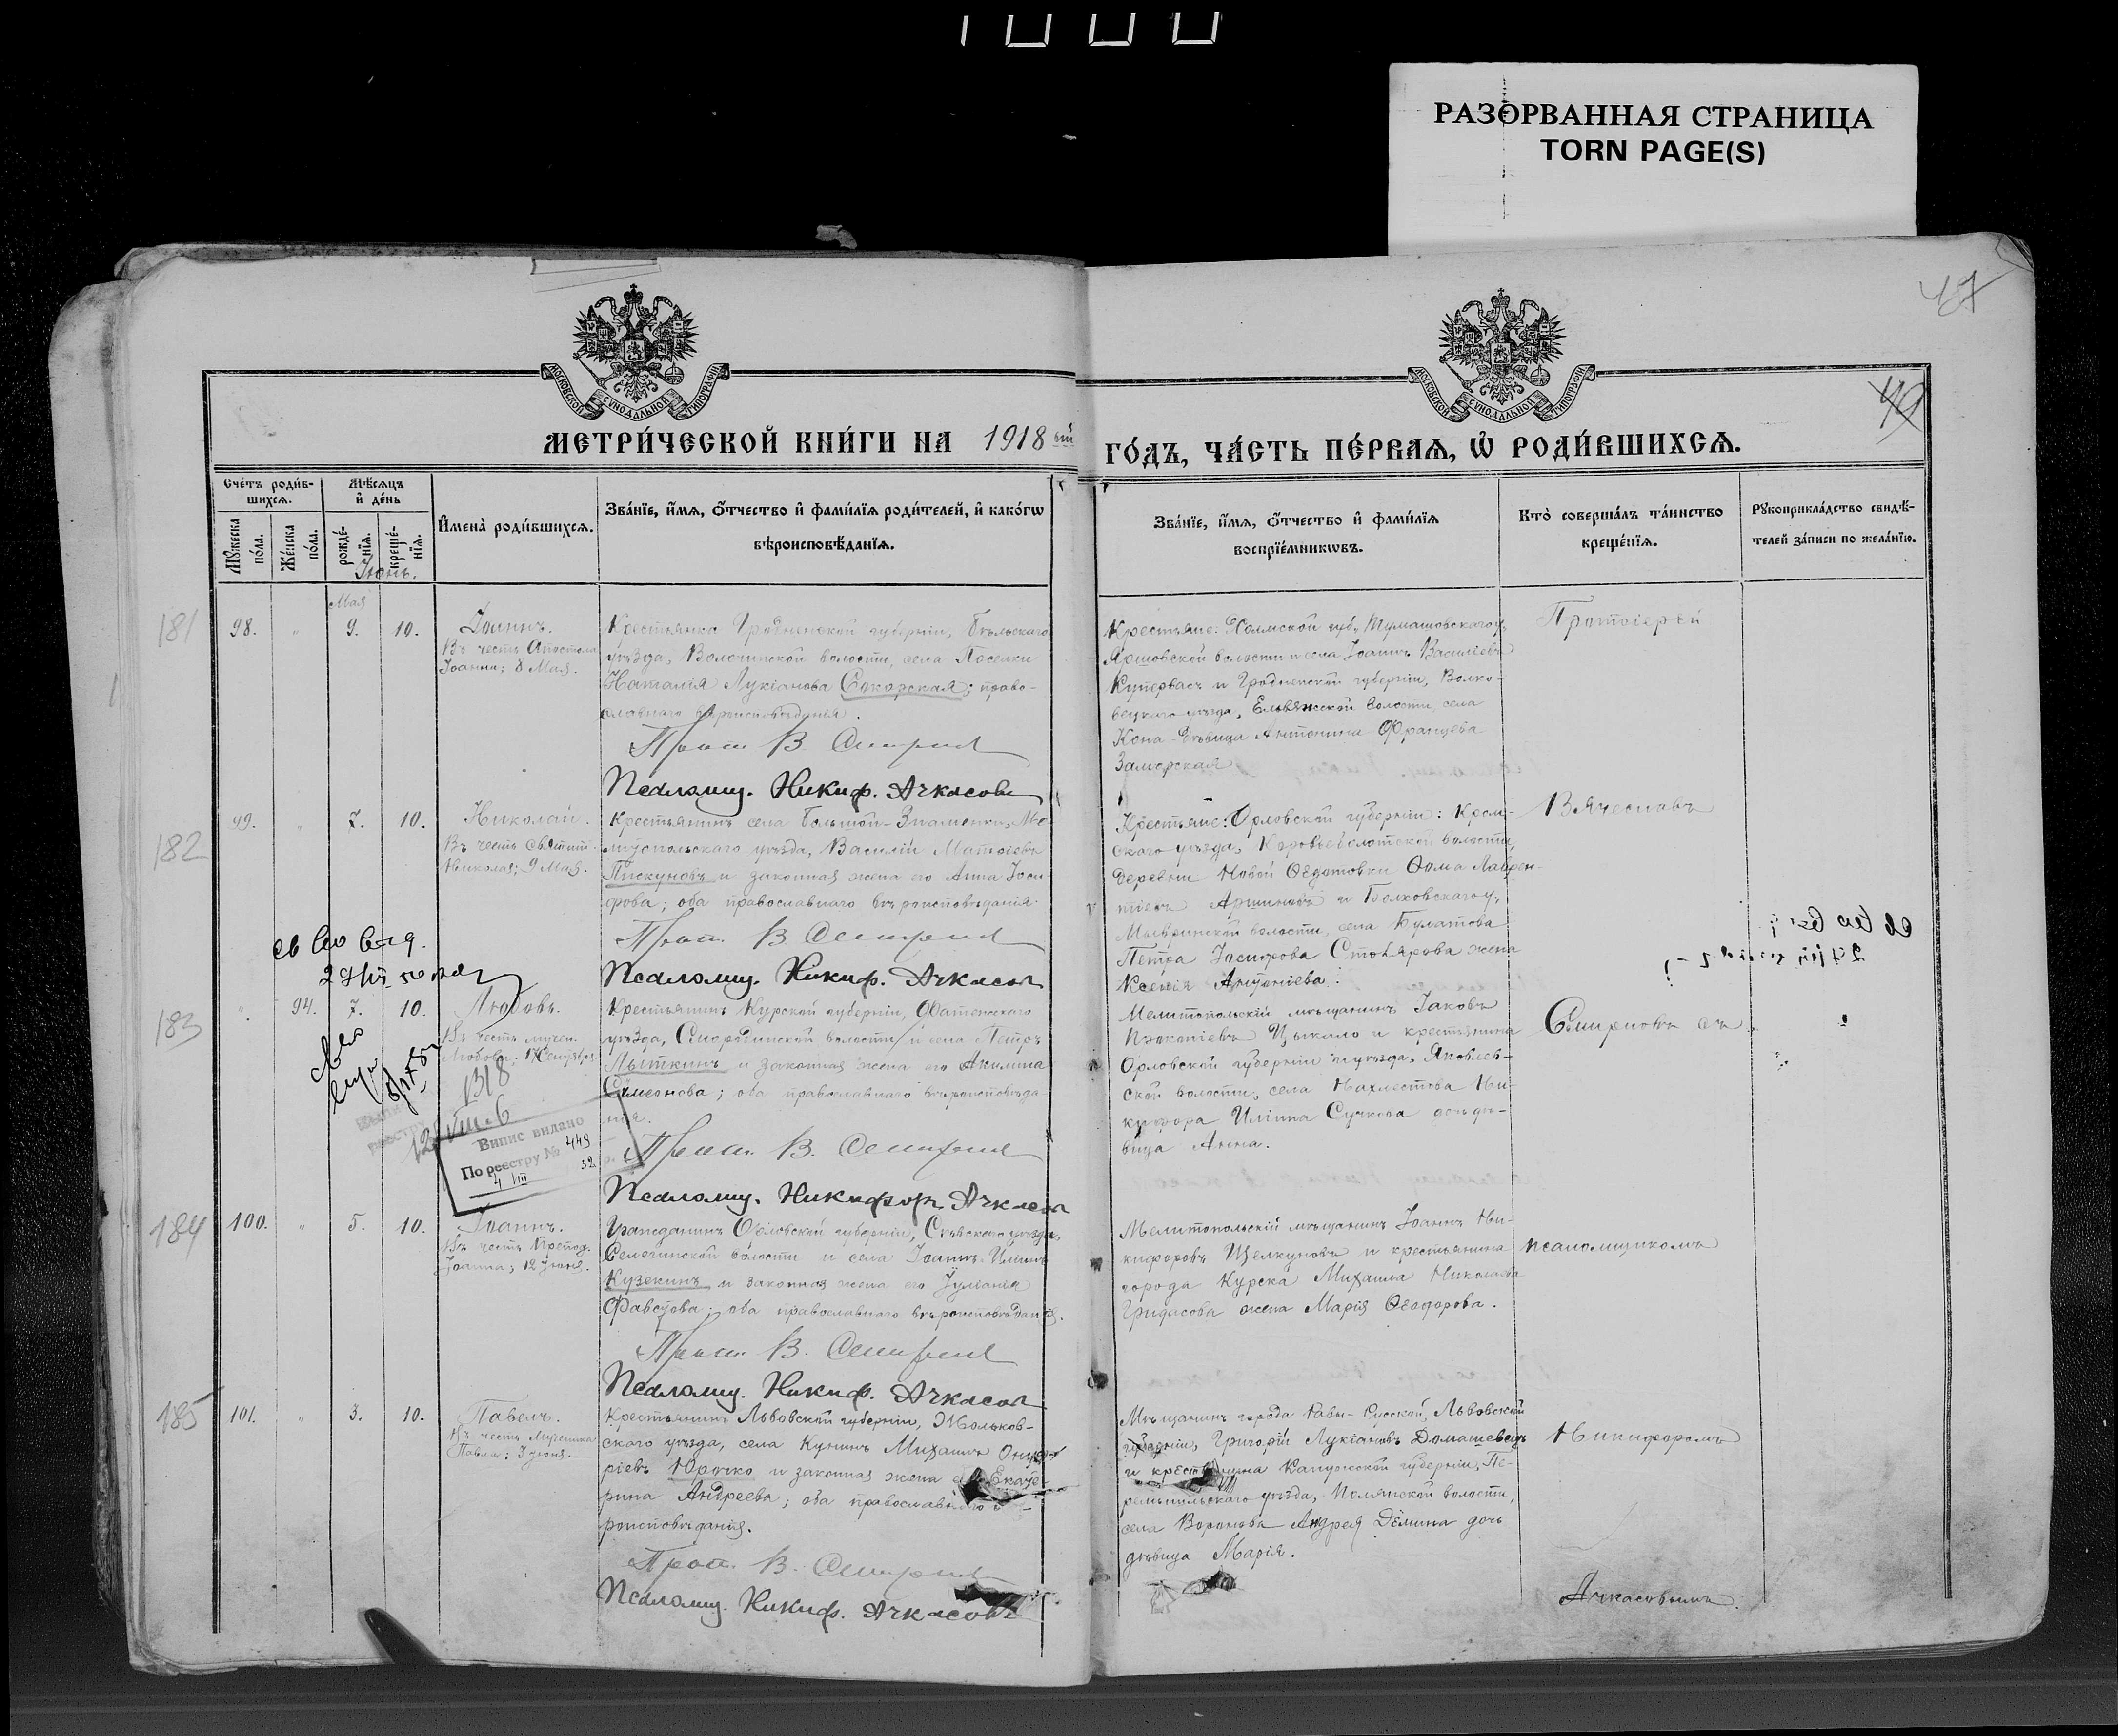 1000
РАЗОРВАННАЯ СТРАНИЦА
TORN PAGE(S)
47
49
МОСКОВСКОЙ СѴНОДАЛЬНОЙ ТИПОГРАФІИ
МОСКОВСКОЙ СѴНОДАЛЬНОЙ ТИПОГРАФІИ
МЕТРИ́ЧЕСКОЙ КНИ́ГИ НА 1918 ый
ГО́ДЪ, ЧА́СТЬ ПЕ́РВАЯ, Ѡ҆ РОДИ́ВШИХСЯ.
Сче́тъ роди́в-
шихся.
Мꙋ́жеска по́ла.
Же́нска по́ла.
Мѣ́сяцъ
и҆ де́нь
рожде́-
нїя.
креще́-
нїя.
И҆мена̀ роди́вшихся.
Зва́нїе, и҆́мя, ѻ҆́тчество и҆ фами́лїя роди́телей, и҆ како́гѡ
вѣроисповѣ́данїя.
Зва́нїе, и҆́мя, ѻ҆́тчество и҆ фами́лїя
воспрїе́мникѡвъ.
Кто̀ соверша́лъ та́инство
креще́нїя.
Рꙋкоприкла́дство свидѣ́-
телей за́писи по жела́нїю.
Іюнь.
181
98.
"
Мая
9.
10.
Іоаннъ.
Въ честь Апостола
Іоанна; 8 Мая.
Крестьянка Гродненской губерніи, Бѣльскаго
уѣзда, Волочинской волости, села Поселки
Наталія Лукіанова Сикорская; право-
славнаго вѣроисповѣданія.
Прот. В Смирнов
Псаломщ. Никиф. Ачкасовъ
Крестьяне: Холмской губ., Тумашовскаго у,
Яршовской волости и села Іоаннъ Василіевъ
Купервасъ и Гродненской губерніи, Волко-
выцкаго уѣзда, волости, села
Кона дѣвица Антонина Францева
Заморская
Протоіерей
182
99.
"
7.
10.
Николай.
Въ честь Святит.
Николая; 9 Мая.
Крестьянинъ села Большой-Знаменки, Ме-
литопольскаго уѣзда, Василій Матѳіевъ
Пискуновъ и законная жена его Анна Іоси-
фова; оба православнаго вѣроисповѣданія.
Прот. В Смирнов
Псаломщ. Никиф. Ачкасов
Крестьяне: Орловской губерніи: Кром-
скаго уѣзда, Коровье волости,
деревни Новой Ѳедотовки Ѳома Лаврен-
тіевъ Аршиновъ и Болховскаго у,
волости, села Булатова
Петра Іосифова Столярова жена
Ксенія Антоніева.
Вячеславъ
183
"
94.
7.
10.
Любовь.
Въ честь мучен.
Любови; 17 Сентября.
1318
12 VIII-6
Випис видано
По реєстру № 449
4 VIII 52
Крестьянинъ Курской губерніи, Фатежскаго
уѣзда, Смородинской волости и села Петръ
Лыткинъ и законная жена его Акилина
Симеонова; оба православнаго вѣроисповѣда
нія.
Прот. В. Смирнов
Псаломщ. Никифоръ Ачкасов
Мелитопольскій мѣщанинъ Іаковъ
Прокопіевъ Цыкало и крестьянина
Орловской губерніи и уѣзда, Яковлев-
ской волости, села Нахлестова Ни-
кифора Иліина Сучкова дочь дѣ-
вица Анна.
Смирновъ съ
184
100.
"
5.
10.
Іоаннъ.
Въ честь Препод.
Іоанна; 12 Іюня.
Гражданинъ Орловской губерніи, Сѣвскаго уѣзда,
Селечинской волости и села Іоаннъ Иліинъ
Кузекинъ и законная жена его Іуліанія
Фавстова; оба православнаго вѣроисповѣданія.
Прот. В. Смирнов
Псаломщ. Никиф. Ачкасов
Мелитопольскій мѣщанинъ Іоаннъ Ни-
кифоровъ Щелкуновъ и крестьянина
города Курска Михаила Николаева
Гридасова жена Марія Ѳеодорова.
псаломщикомъ
185
101.
"
3.
10.
Павелъ.
Въ честь Мученика
Павла; 3 Іюня.
Крестьянинъ Львовской губерніи, Жолков-
скаго уѣзда, села Кунинъ Михаилъ Онуф-
ріевъ Юрочко и законная жена его Екате-
рина Андреева; оба православнаго вѣ-
роисповѣданія.
Прот. В. Смирнов
Псаломщ. Никиф. Ачкасовъ
Мѣщанинъ города Равы-Русской, Львовской
губерніи, Григорій Лукіановъ Домашевецъ
и крестьянина Калужской губерніи, Пе-
ремышльскаго уѣзда, волости,
села Воронова Андрея Дёмина дочь
дѣвица Марія.
Никифоромъ
Ачкасовымъ.